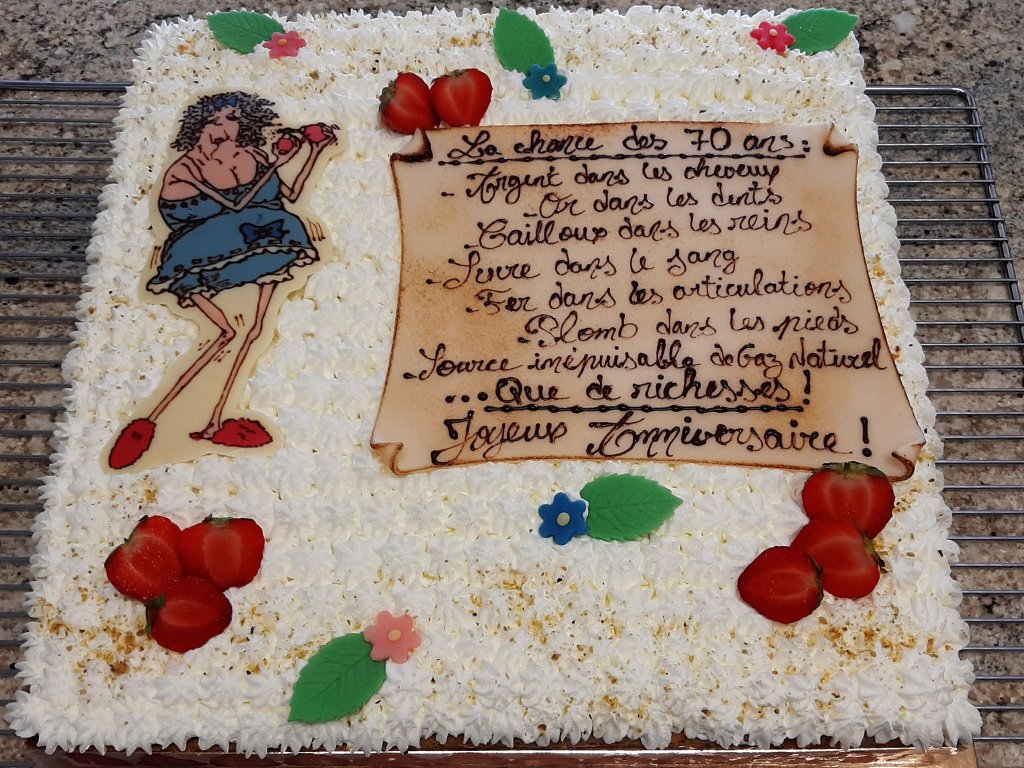 La chance des 70 ans :
- Argent dans les cheveux
- Or dans les dents
- Cailloux dans les reins
- Sucre dans le sang
- Fer dans les articulations
- Plomb dans les pieds
- Source inépuisable de Gaz Naturel
... Que de richesses !
Joyeux Anniversaire !